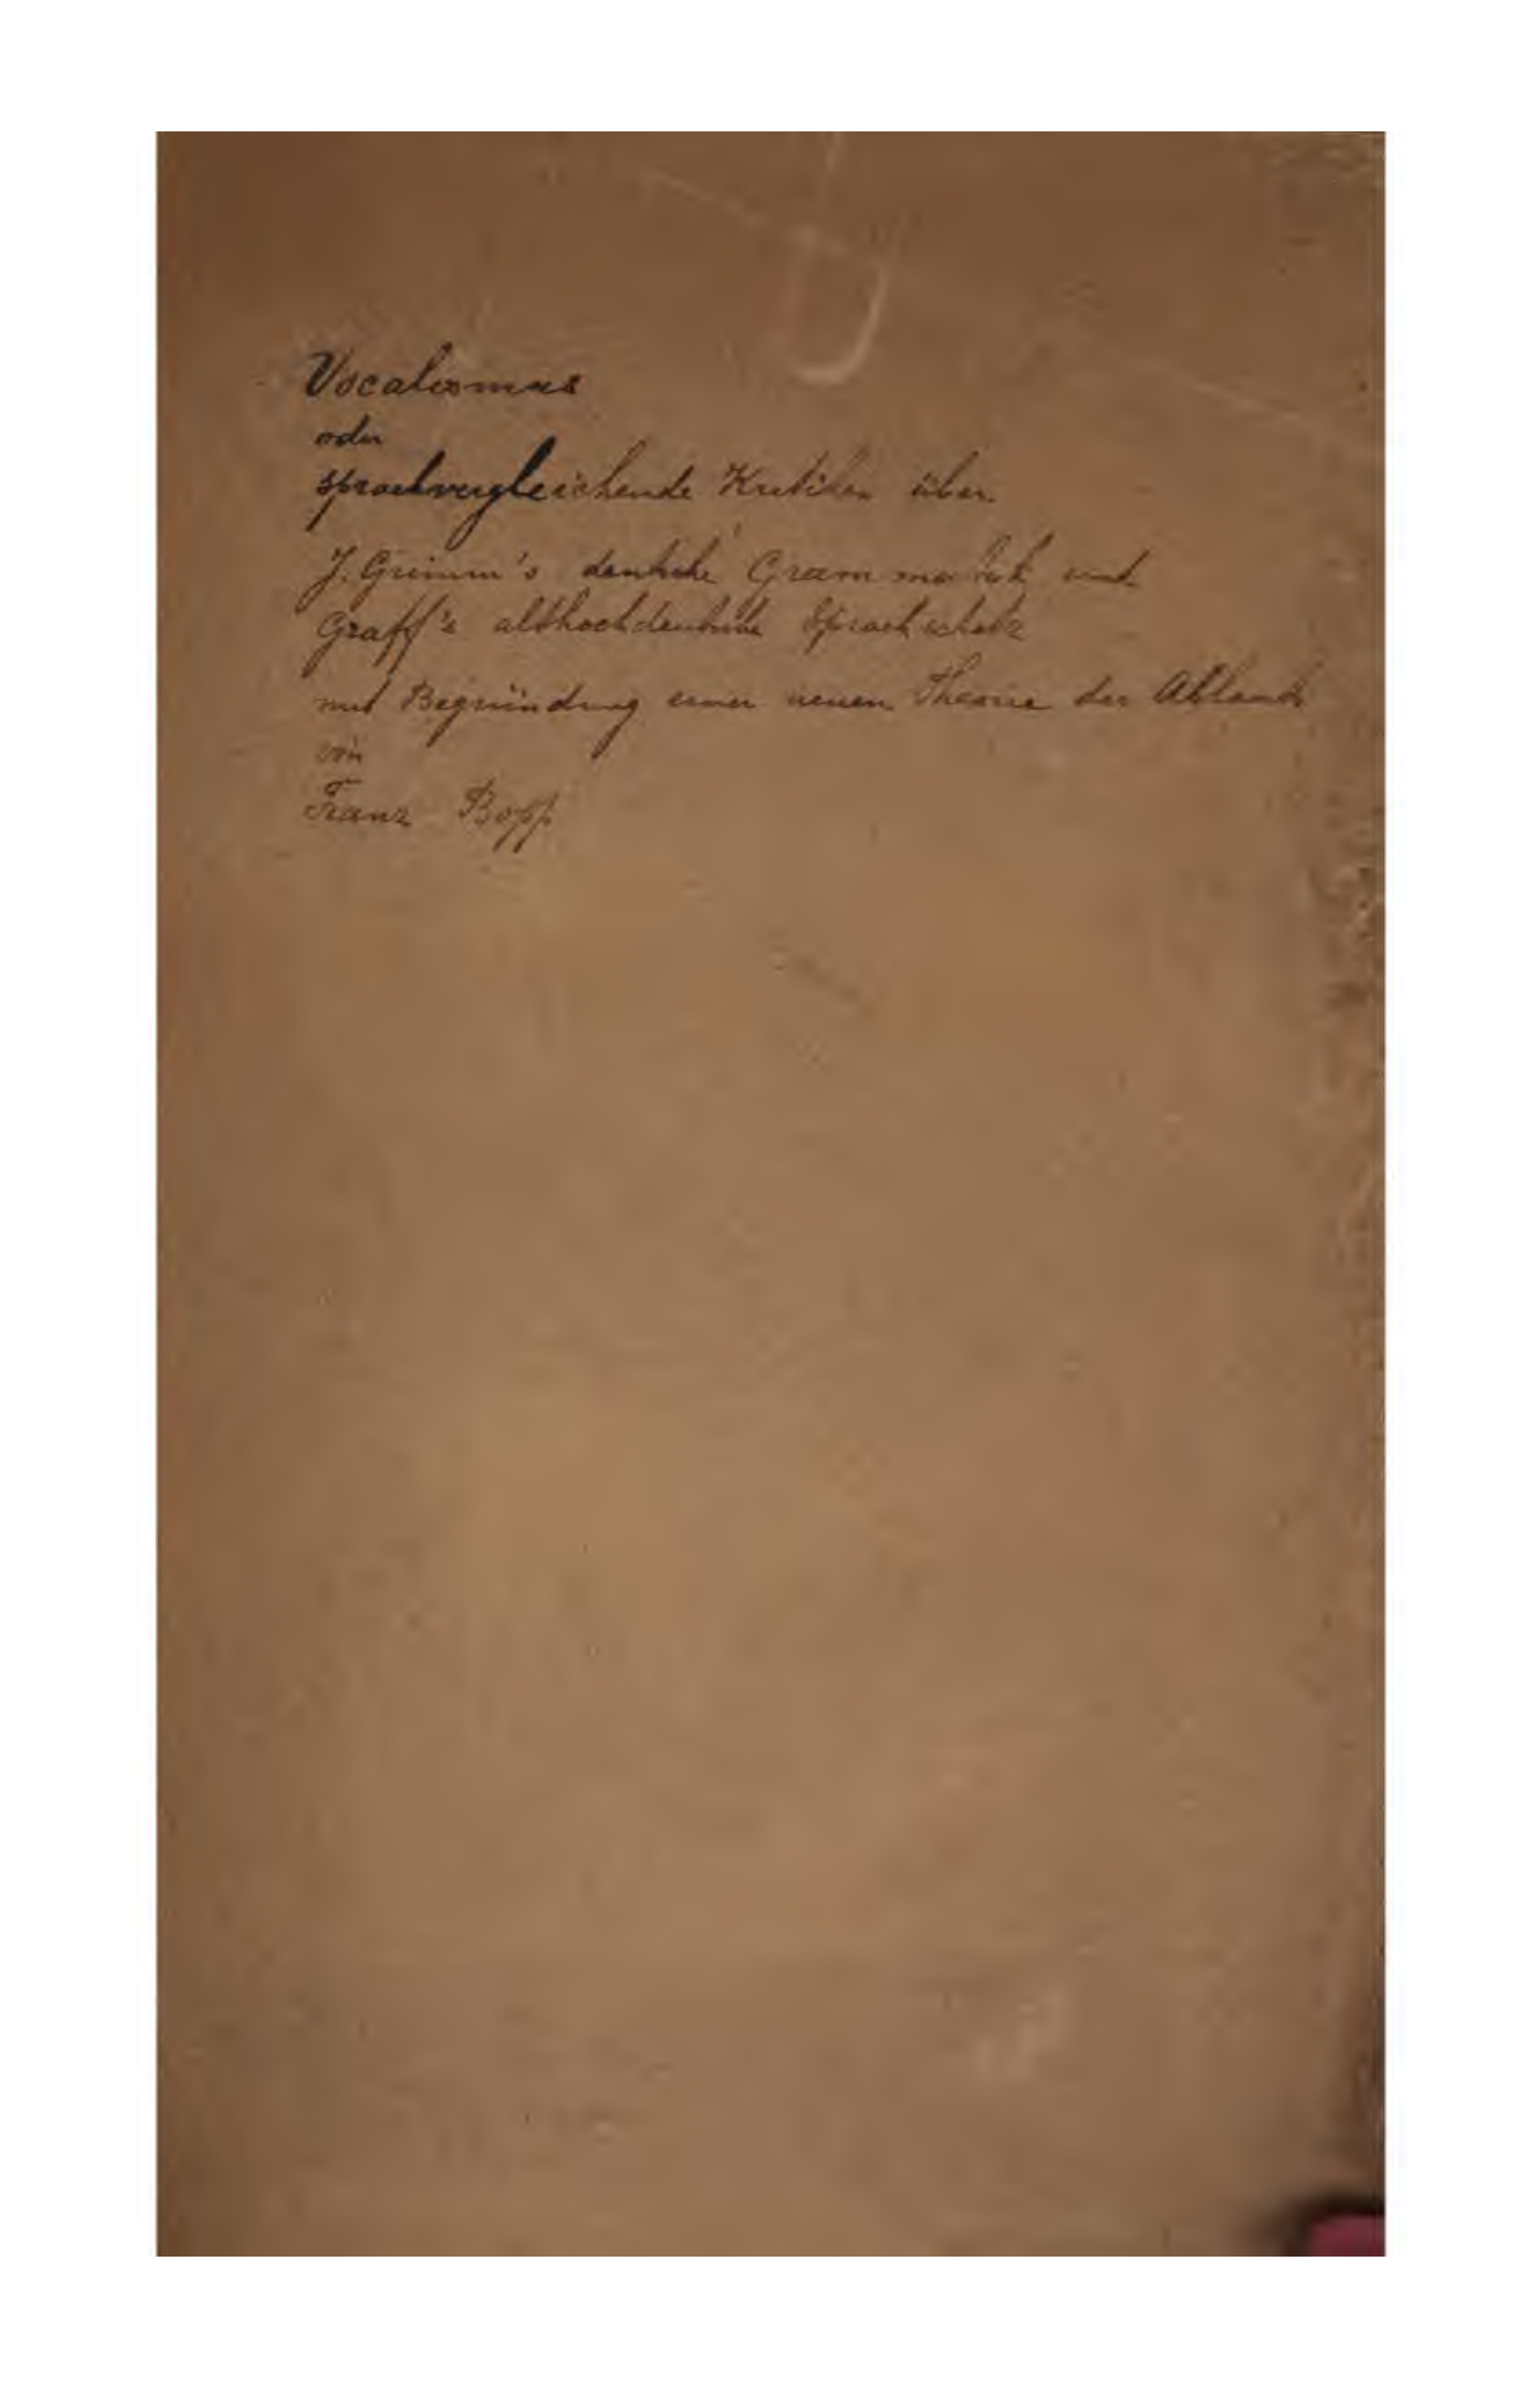 Vocalismus
oder
sprachvergleichende Kritiken über
J. Grimm's deutsche Grammatik und
Graff's althochdeutsche Sprachschatz
mit Begründung einer neuen Theorie der Ablauts
von
Franz Bopp